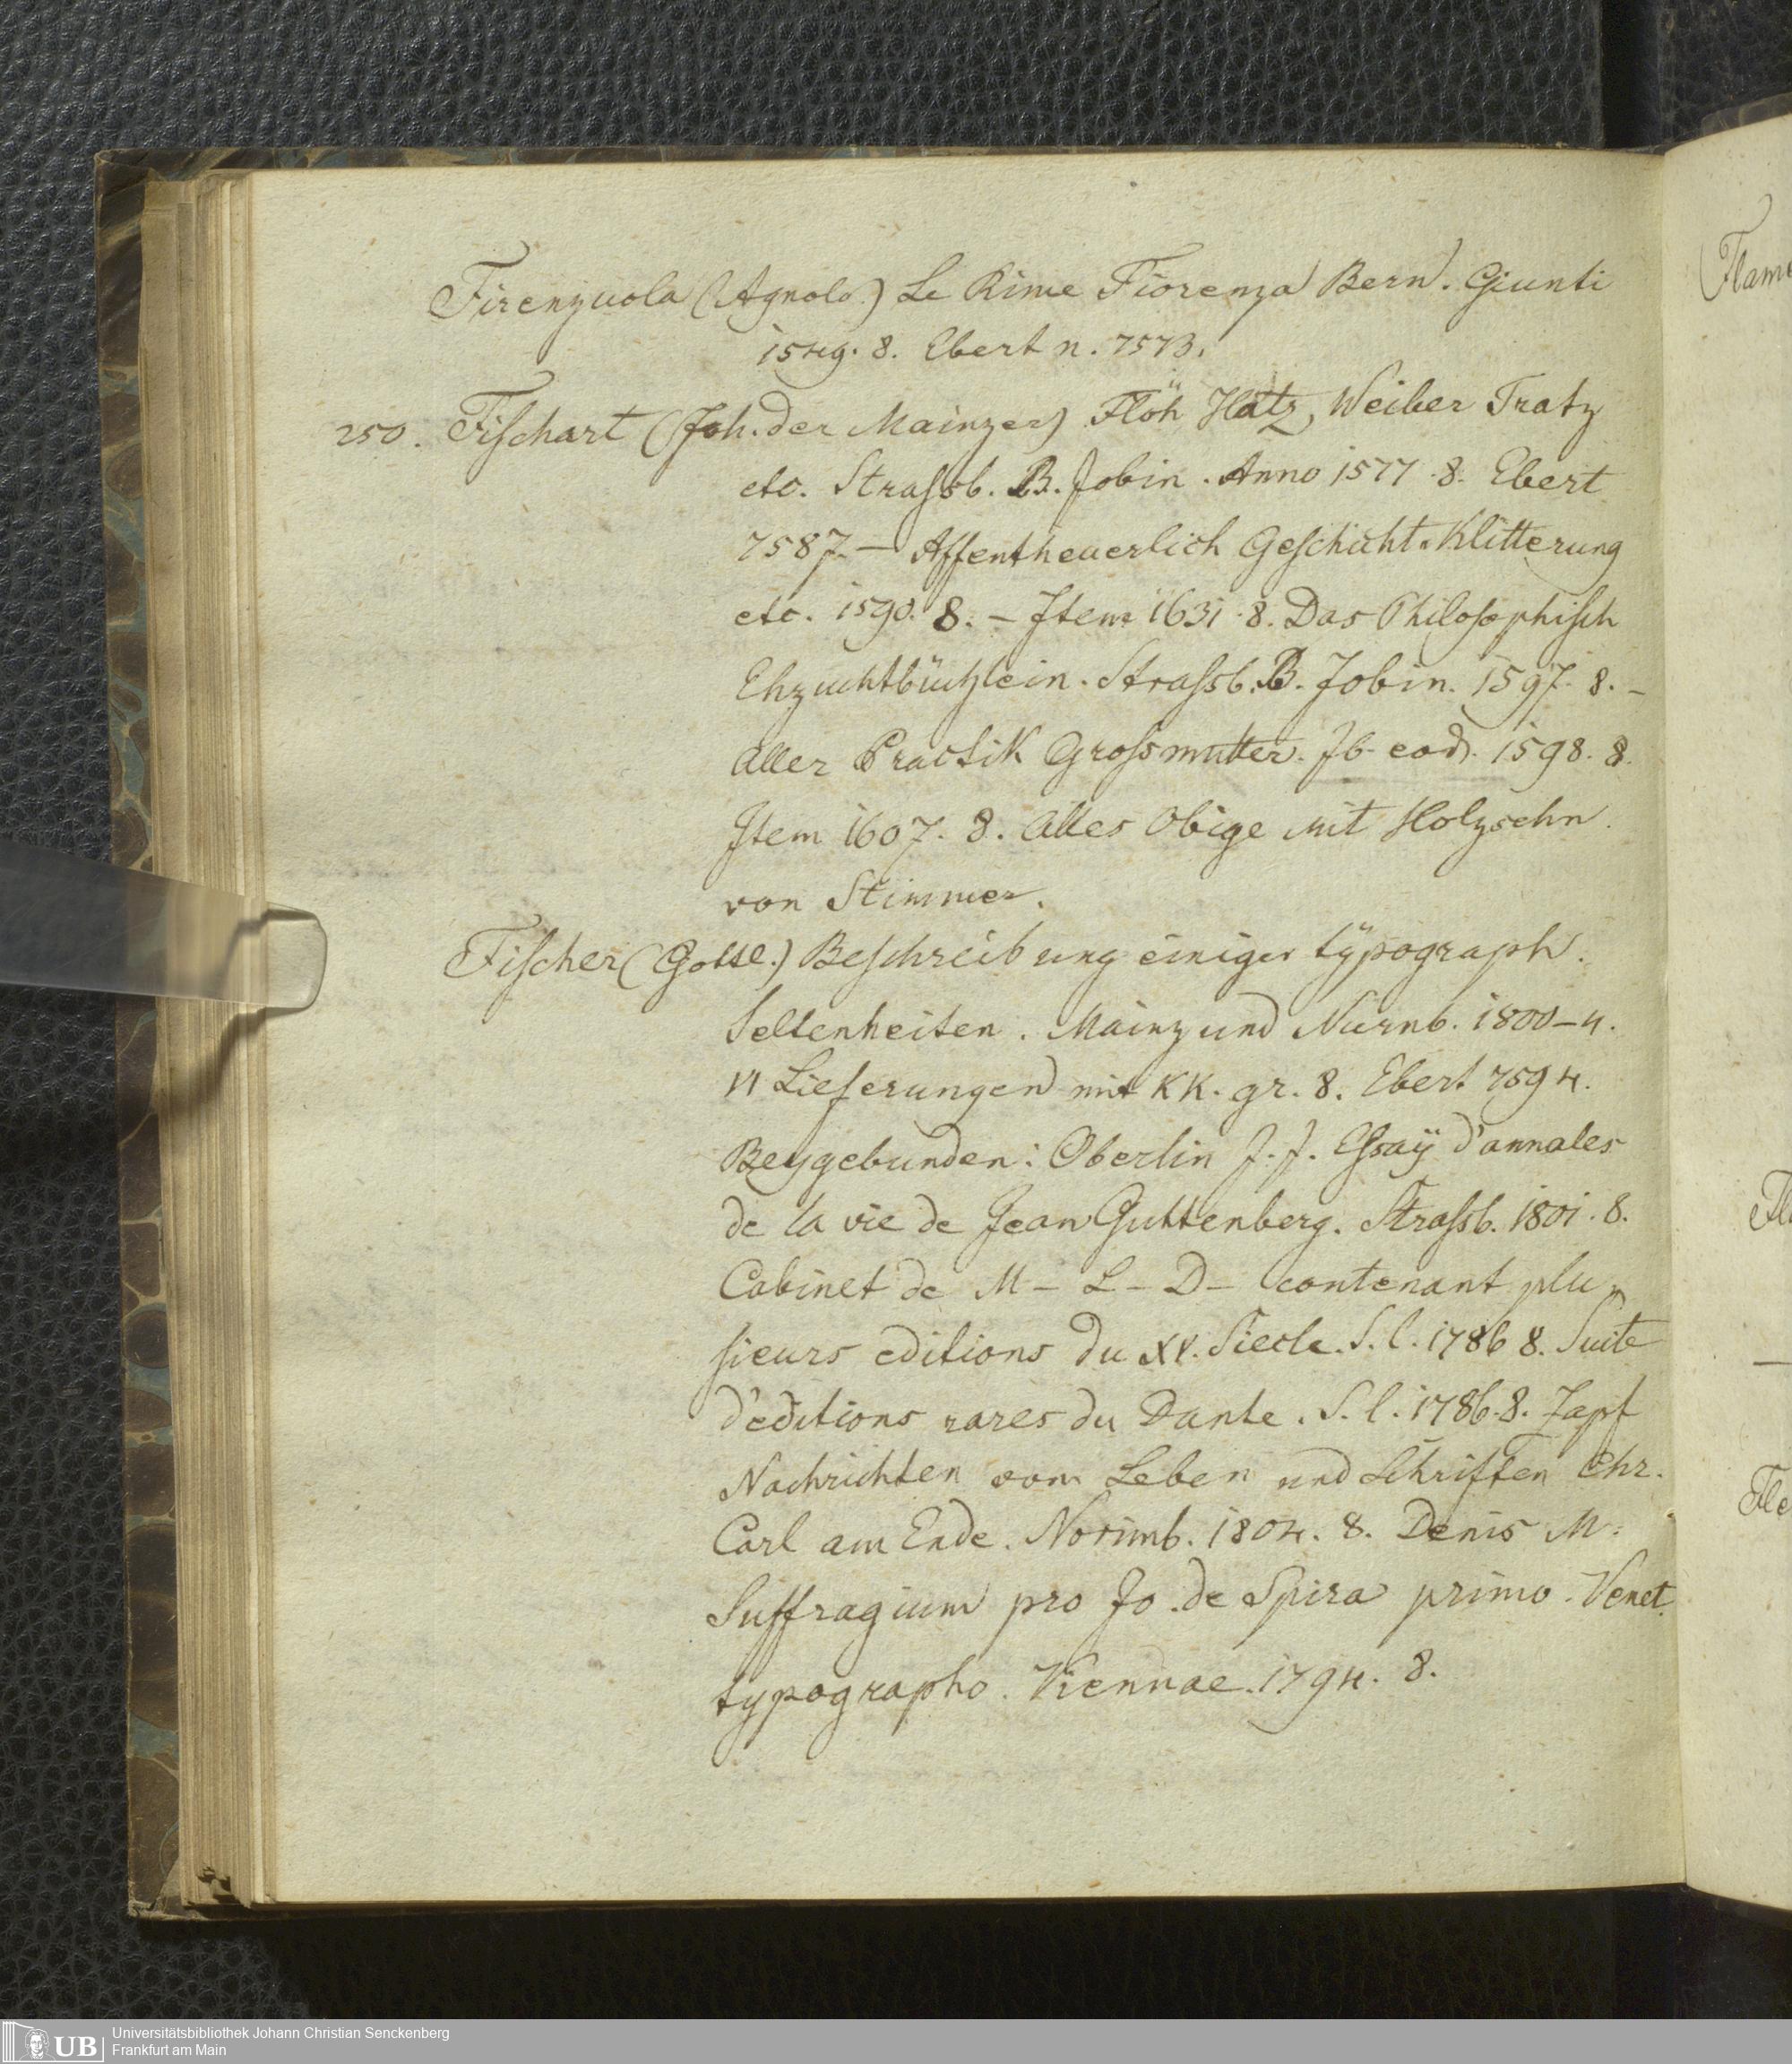 Firenzuola (Agnolo.) Le Rime Fiorenza Bern. Giunti
1549. 8. Ebert n. 7573.
250. Fischart (Joh. der Mainzer) Flöh Hatz, Weiber Tratz
etc. Strassb. B. Jobin. Anno 1577. 8. Ebert
7587. — Affentheuerlich Geschicht-Klitterung
etc. 1590. 8. — Item 1631. 8. Das Philosophisch
Ehzuchtbüchlein. Strassb. B. Jobin. 1597. 8. —
Aller Practik Grossmutter. Ib. eod. 1598. 8.
Item 1607. 8. Alles Obige mit Holzschn.
von Stimmer.
Fischer (Gotth.) Beschreibung einiger typograph.
Seltenheiten. Mainz und Nürnb. 1800–4.
VI Lieferungen mit KK. gr. 8. Ebert 7594.
Beygebunden: Oberlin J. J. Essaÿ d'annales
de la vie de Jean Guttenberg. Strassb. 1801. 8.
Cabinet de M – L – D – contenant plu-
sieurs editions du XV. Siecle. S. l. 1786 8. Suite
d'editions rares du Dante. S. l. 1786. 8. Zapf
Nachrichten vom Leben und Schriften Chr.
Carl am Ende. Norimb. 1804. 8. Denis M.
Suffragium pro Jo. de Spira primo. Venet.
typographo. Viennae. 1794. 8.
Flam
Fl
Fle
UB
Universitätsbibliothek Johann Christian Senckenberg
Frankfurt am Main